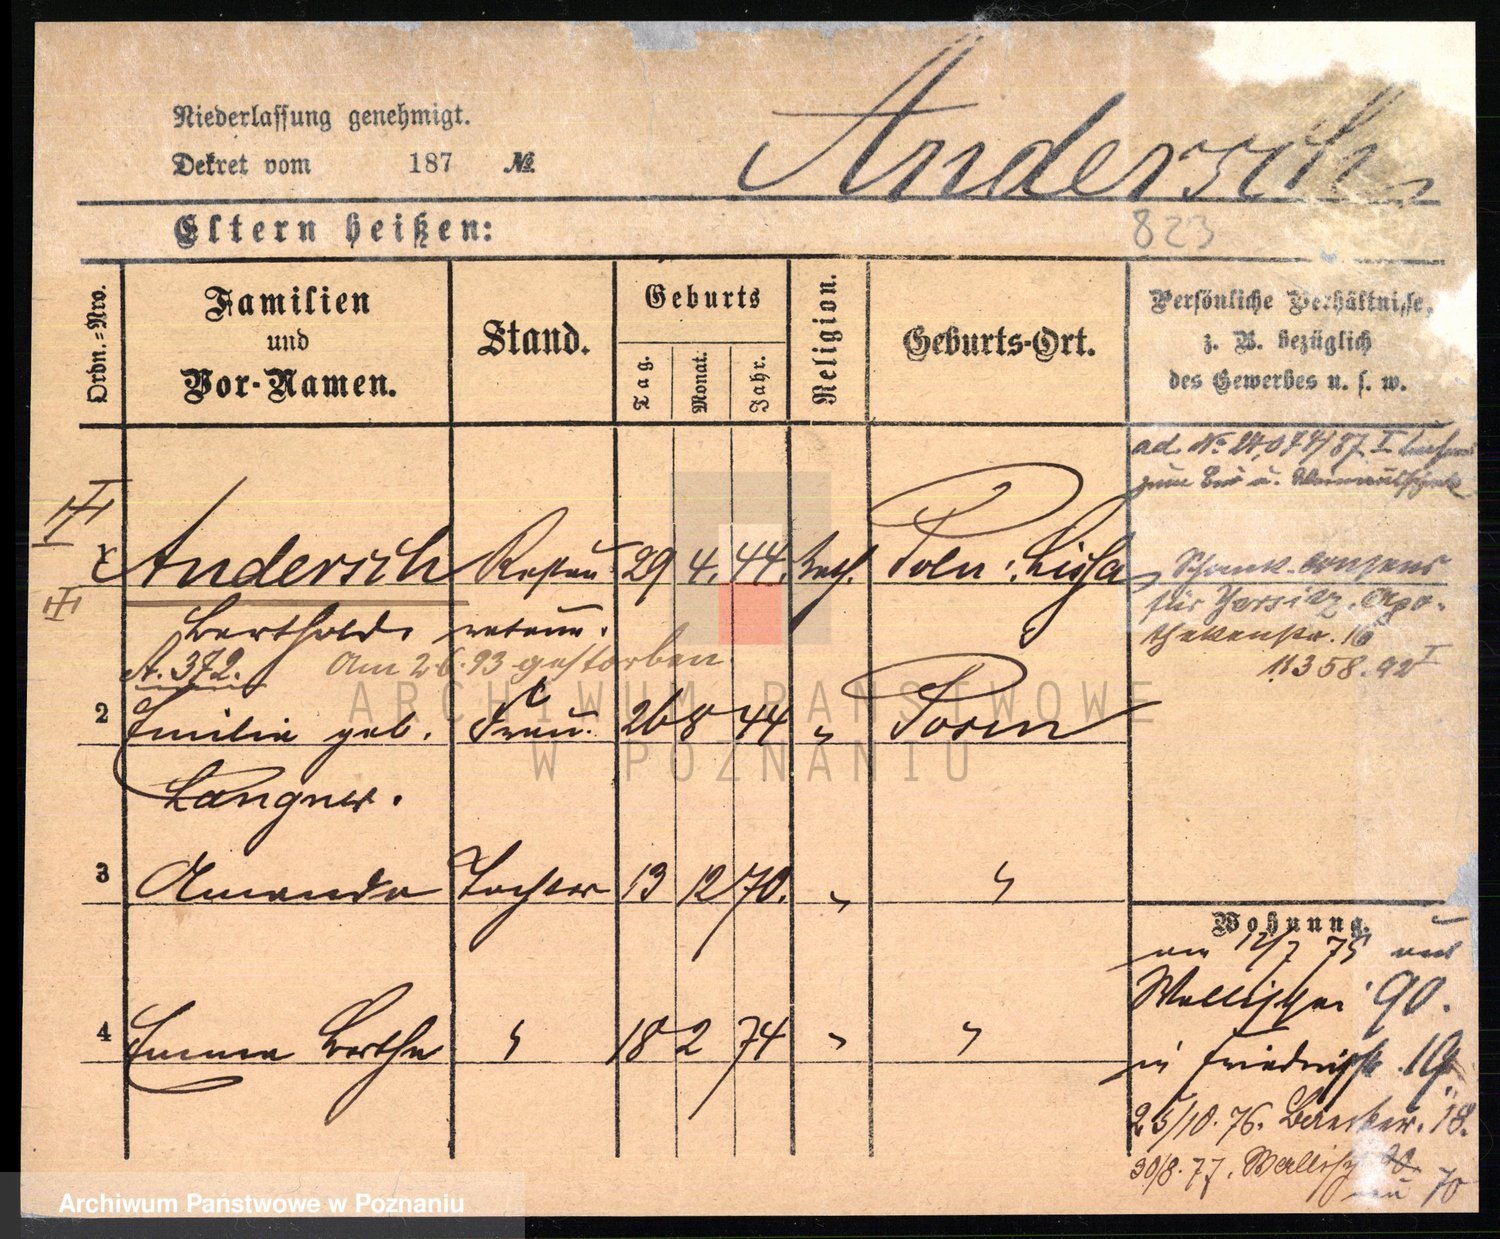 Niederlassung genehmigt.
Dekret vom 187 №
Andersch
Eltern heißen:
823
Ordn.=Nro.
Familien
und
Vor-Namen.
Stand.
Geburts
Tag.
Monat.
Jahr.
Religion.
Geburts-Ort.
Persönliche Verhältnisse,
z. B. bezüglich
des Gewerbes u. s. w.
ad. №
zum Bier u.
1 Andersch Restau 29 4. 44. kath. Poln: Lissa
Berthold. rateur.
A. 372. Am 2.6.93 gestorben.
2 Emilie geb. Frau. 26 8 44 " Posen
Langner.
3 Amanda Tochter 13 12 70. " "
4 Emma Bertha " 18 2 74 " "
Schank-Consens
für Jersitz, Apo-
thekenstr. 16
11358.92 I
Wohnung.
am 12/7 75 aus
Wallischei 90.
in Friedrichstr. 19.
25/10. 76. Baecker. 18.
30/8. 77. Wallisch
70
ARCHIWUM PAŃSTWOWE
W POZNANIU
Archiwum Państwowe w Poznaniu